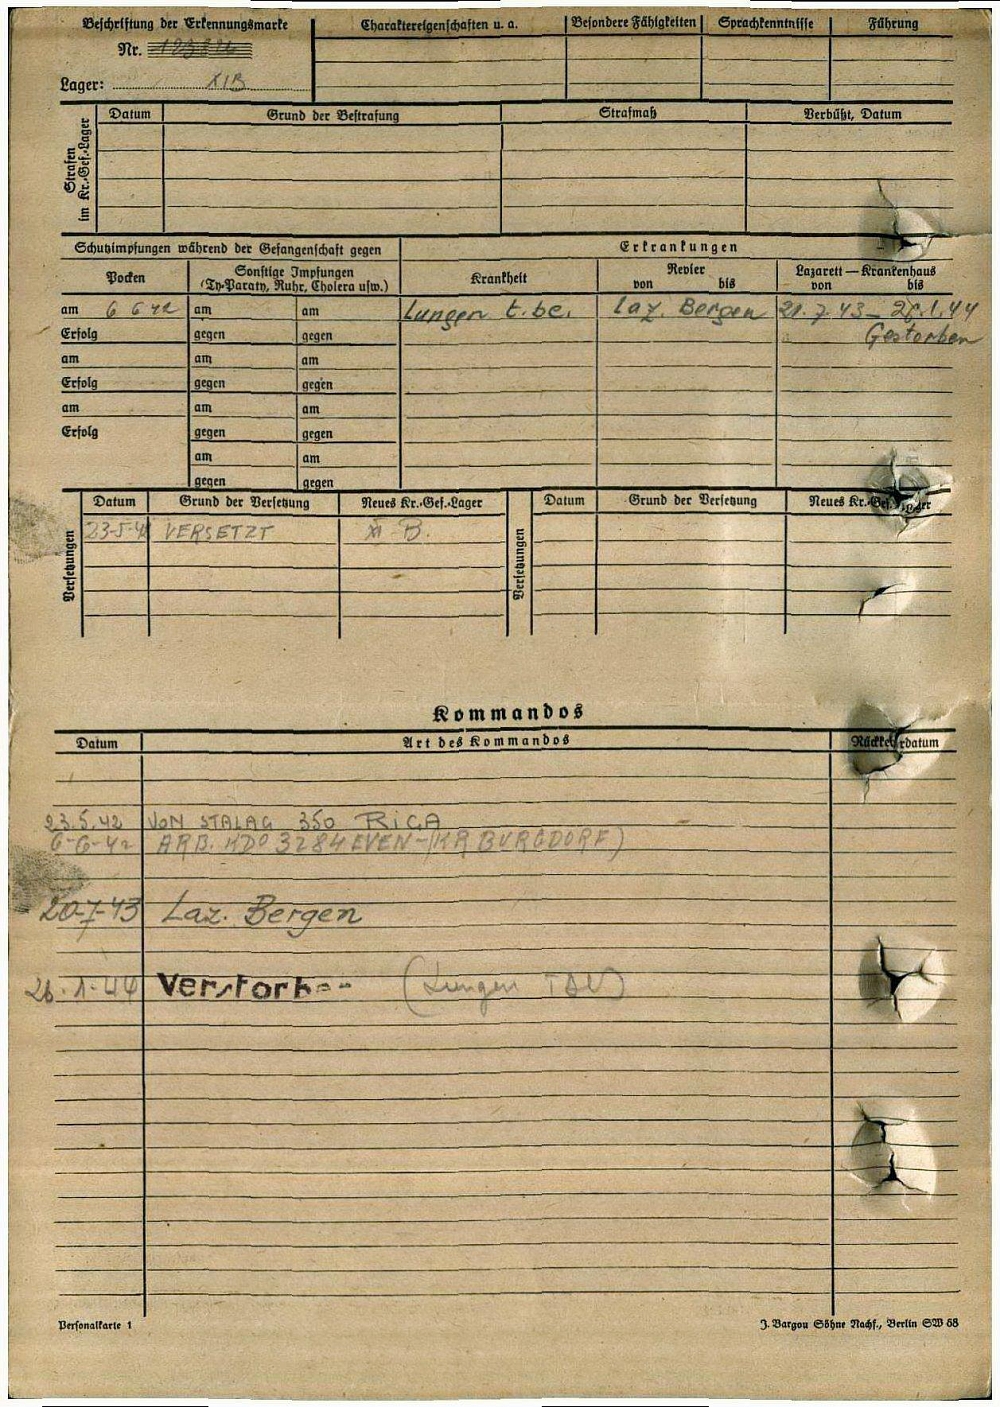 Beschriftung der Erkennungsmarke
Nr.
Lager: XIB
Charaktereigenschaften u. a. Besondere Fähigkeiten Sprachkenntnisse Führung
Strafen im Kr.-Gef.-Lager
Datum Grund der Bestrafung Strafmaß Verbüßt, Datum
Schutzimpfungen während der Gefangenschaft gegen Erkrankungen
Pocken Sonstige Impfungen (Ty-Paraty, Ruhr, Cholera usw.) Krankheit Revier von bis Lazarett — Krankenhaus von bis
am 6 6 42 am am Lungen t.bc. Laz. Bergen 21.7.43 – 26.1.44
Erfolg gegen gegen Gestorben
am am am
Erfolg gegen gegen
am am am
Erfolg gegen gegen
am am
gegen gegen
Versetzungen
Datum Grund der Versetzung Neues Kr.-Gef.-Lager
23-5-42 VERSETZT XI B.
Versetzungen
Datum Grund der Versetzung Neues Kr.-Gef.-Lager
Kommandos
Datum Art des Kommandos Rückkehrdatum
23.5.42 VON STALAG 350 RIGA
6-6-42 ARB. KDO 3284 EVEN-(KR BURGDORF)
20-7-43 Laz. Bergen
26.1.44 Verstorben (Lungen
Personalkarte 1 J. Bargou Söhne Nachf., Berlin SW 68